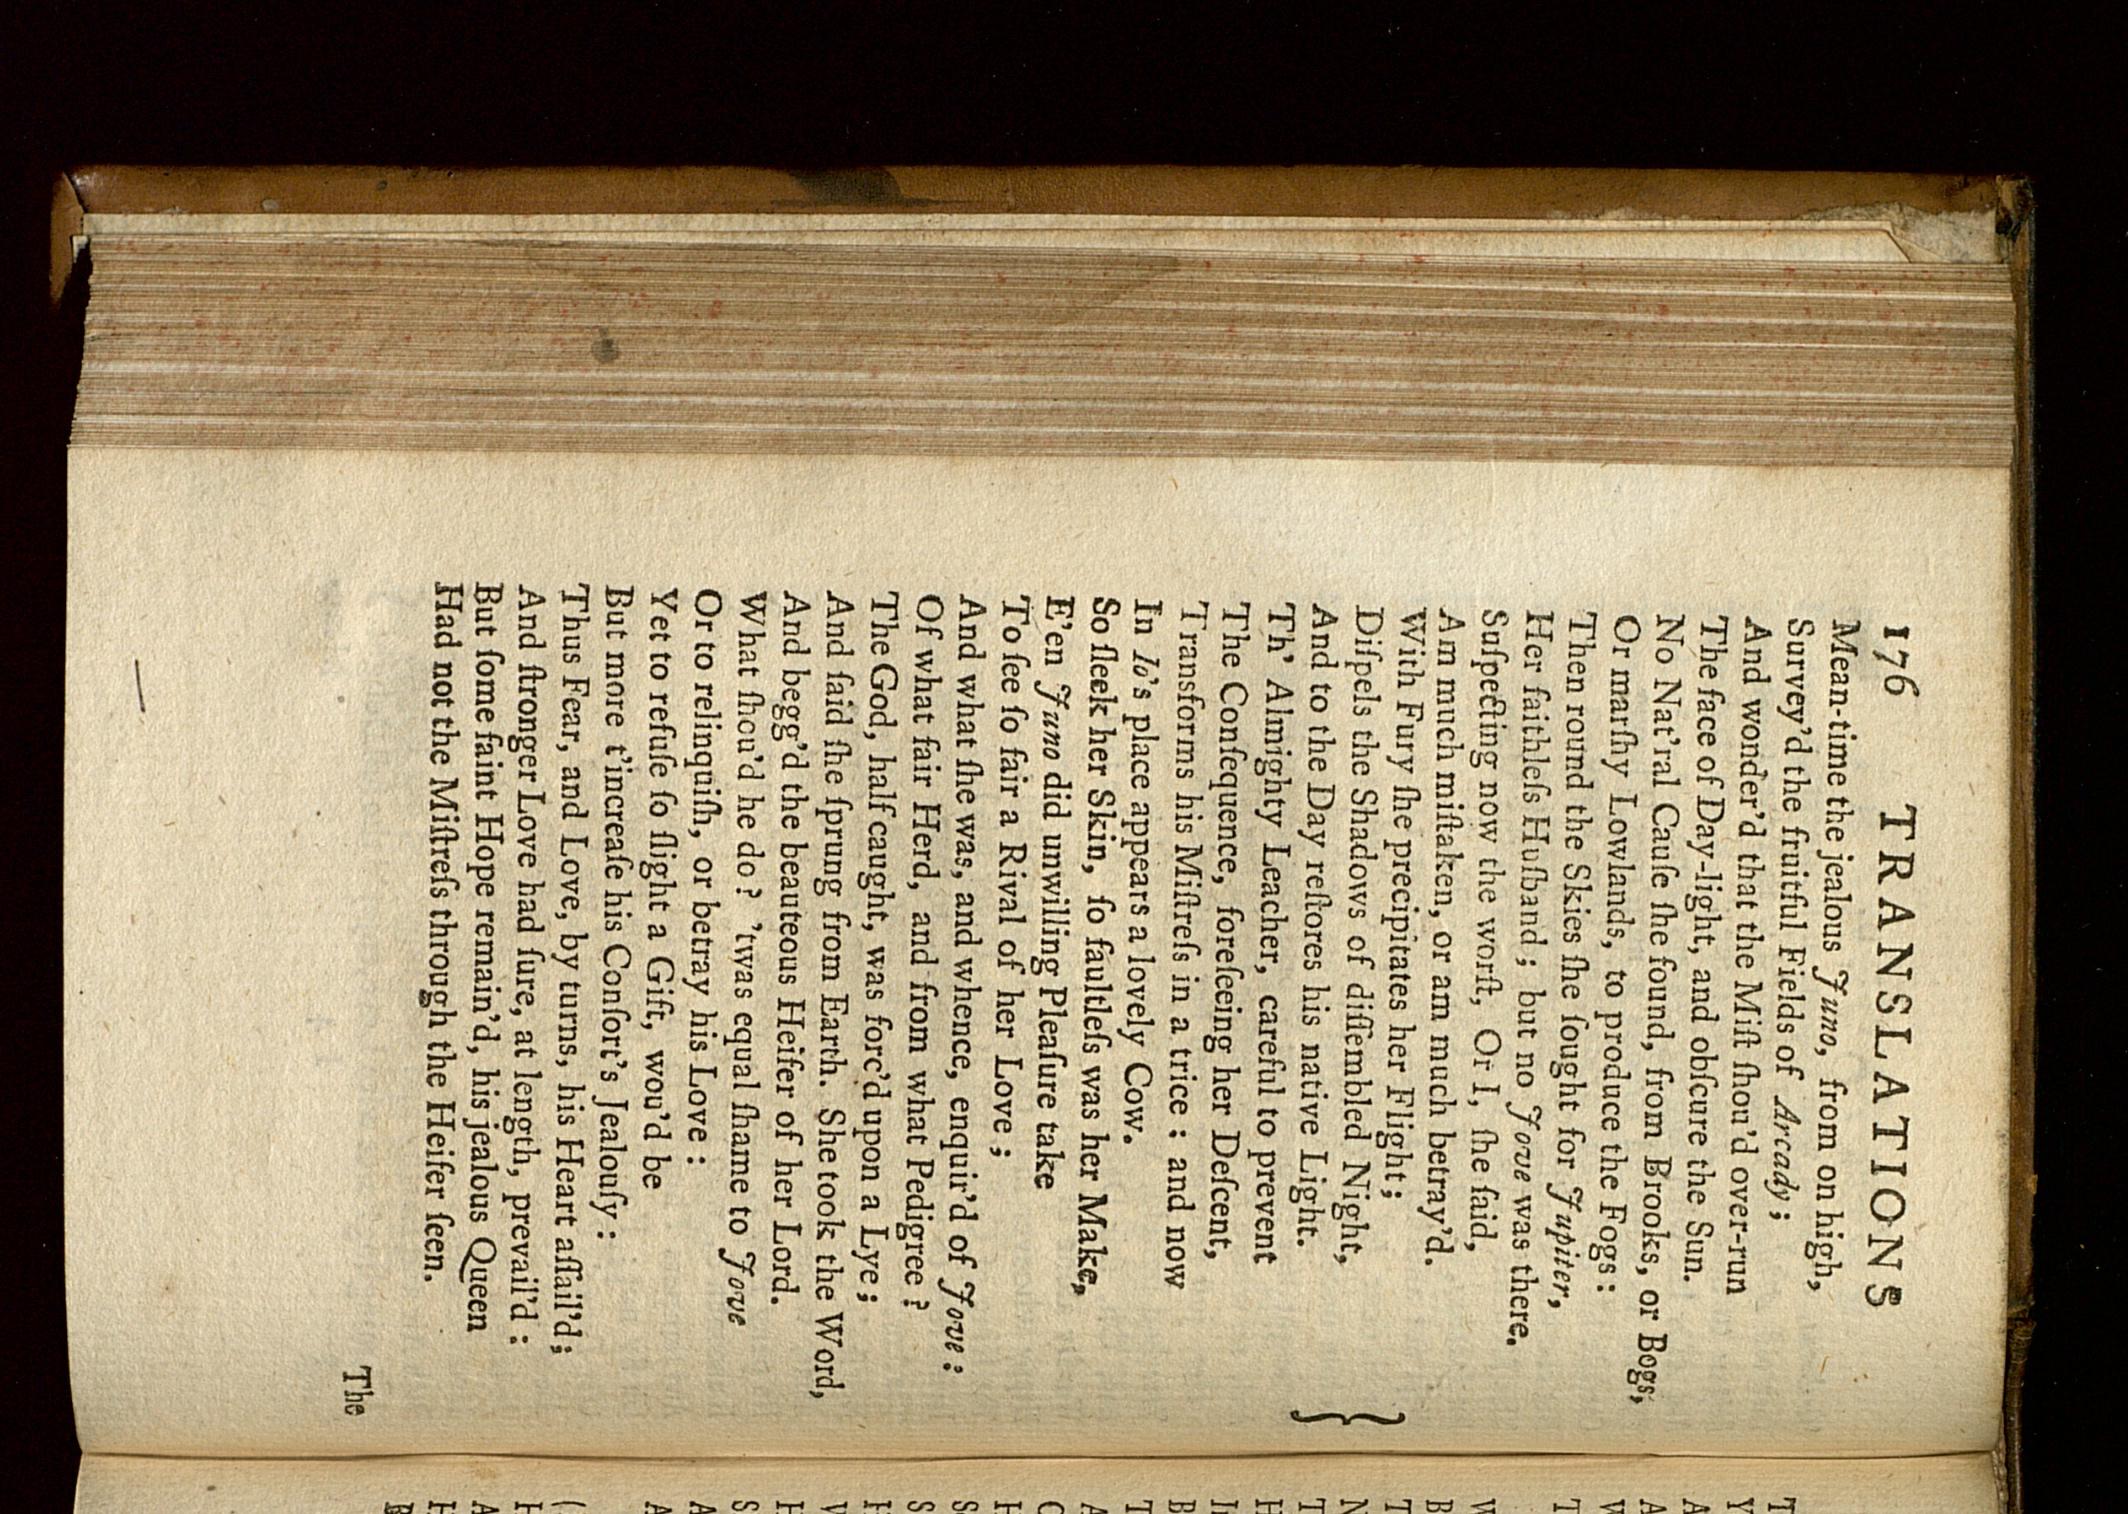 176 TRANSLATIONS
Mean-time the jealous Juno, from on high,
Survey'd the fruitful Fields of Arcady;
And wonder'd that the Miſt ſhou'd over-run
The face of Day-light, and obſcure the Sun.
No Nat'ral Cauſe ſhe found, from Brooks, or Bogs,
Or marſhy Lowlands, to produce the Fogs:
Then round the Skies ſhe ſought for Jupiter,
Her faithleſs Huſband; but no Jove was there.
Suſpecting now the worſt, Or I, ſhe ſaid,
Am much miſtaken, or am much betray'd.
With Fury ſhe precipitates her Flight;
Diſpels the Shadows of diſſembled Night,
And to the Day reſtores his native Light.
Th' Almighty Leacher, careful to prevent
The Conſequence, foreſeeing her Deſcent,
Transforms his Miſtreſs in a trice: and now
In Io's place appears a lovely Cow.
So ſleek her Skin, ſo faultleſs was her Make,
E'en Juno did unwilling Pleaſure take
To ſee ſo fair a Rival of her Love;
And what ſhe was, and whence, enquir'd of Jove:
Of what fair Herd, and from what Pedigree?
The God, half caught, was forc'd upon a Lye;
And ſaid ſhe ſprung from Earth. She took the Word,
And begg'd the beauteous Heifer of her Lord.
What ſhou'd he do? 'twas equal ſhame to Jove
Or to relinquiſh, or betray his Love:
Yet to refuſe ſo ſlight a Gift, wou'd be
But more t'increaſe his Conſort's Jealouſy:
Thus Fear, and Love, by turns, his Heart aſſail'd;
And ſtronger Love had ſure, at length, prevail'd:
But ſome faint Hope remain'd, his jealous Queen
Had not the Miſtreſs through the Heifer ſeen.
The